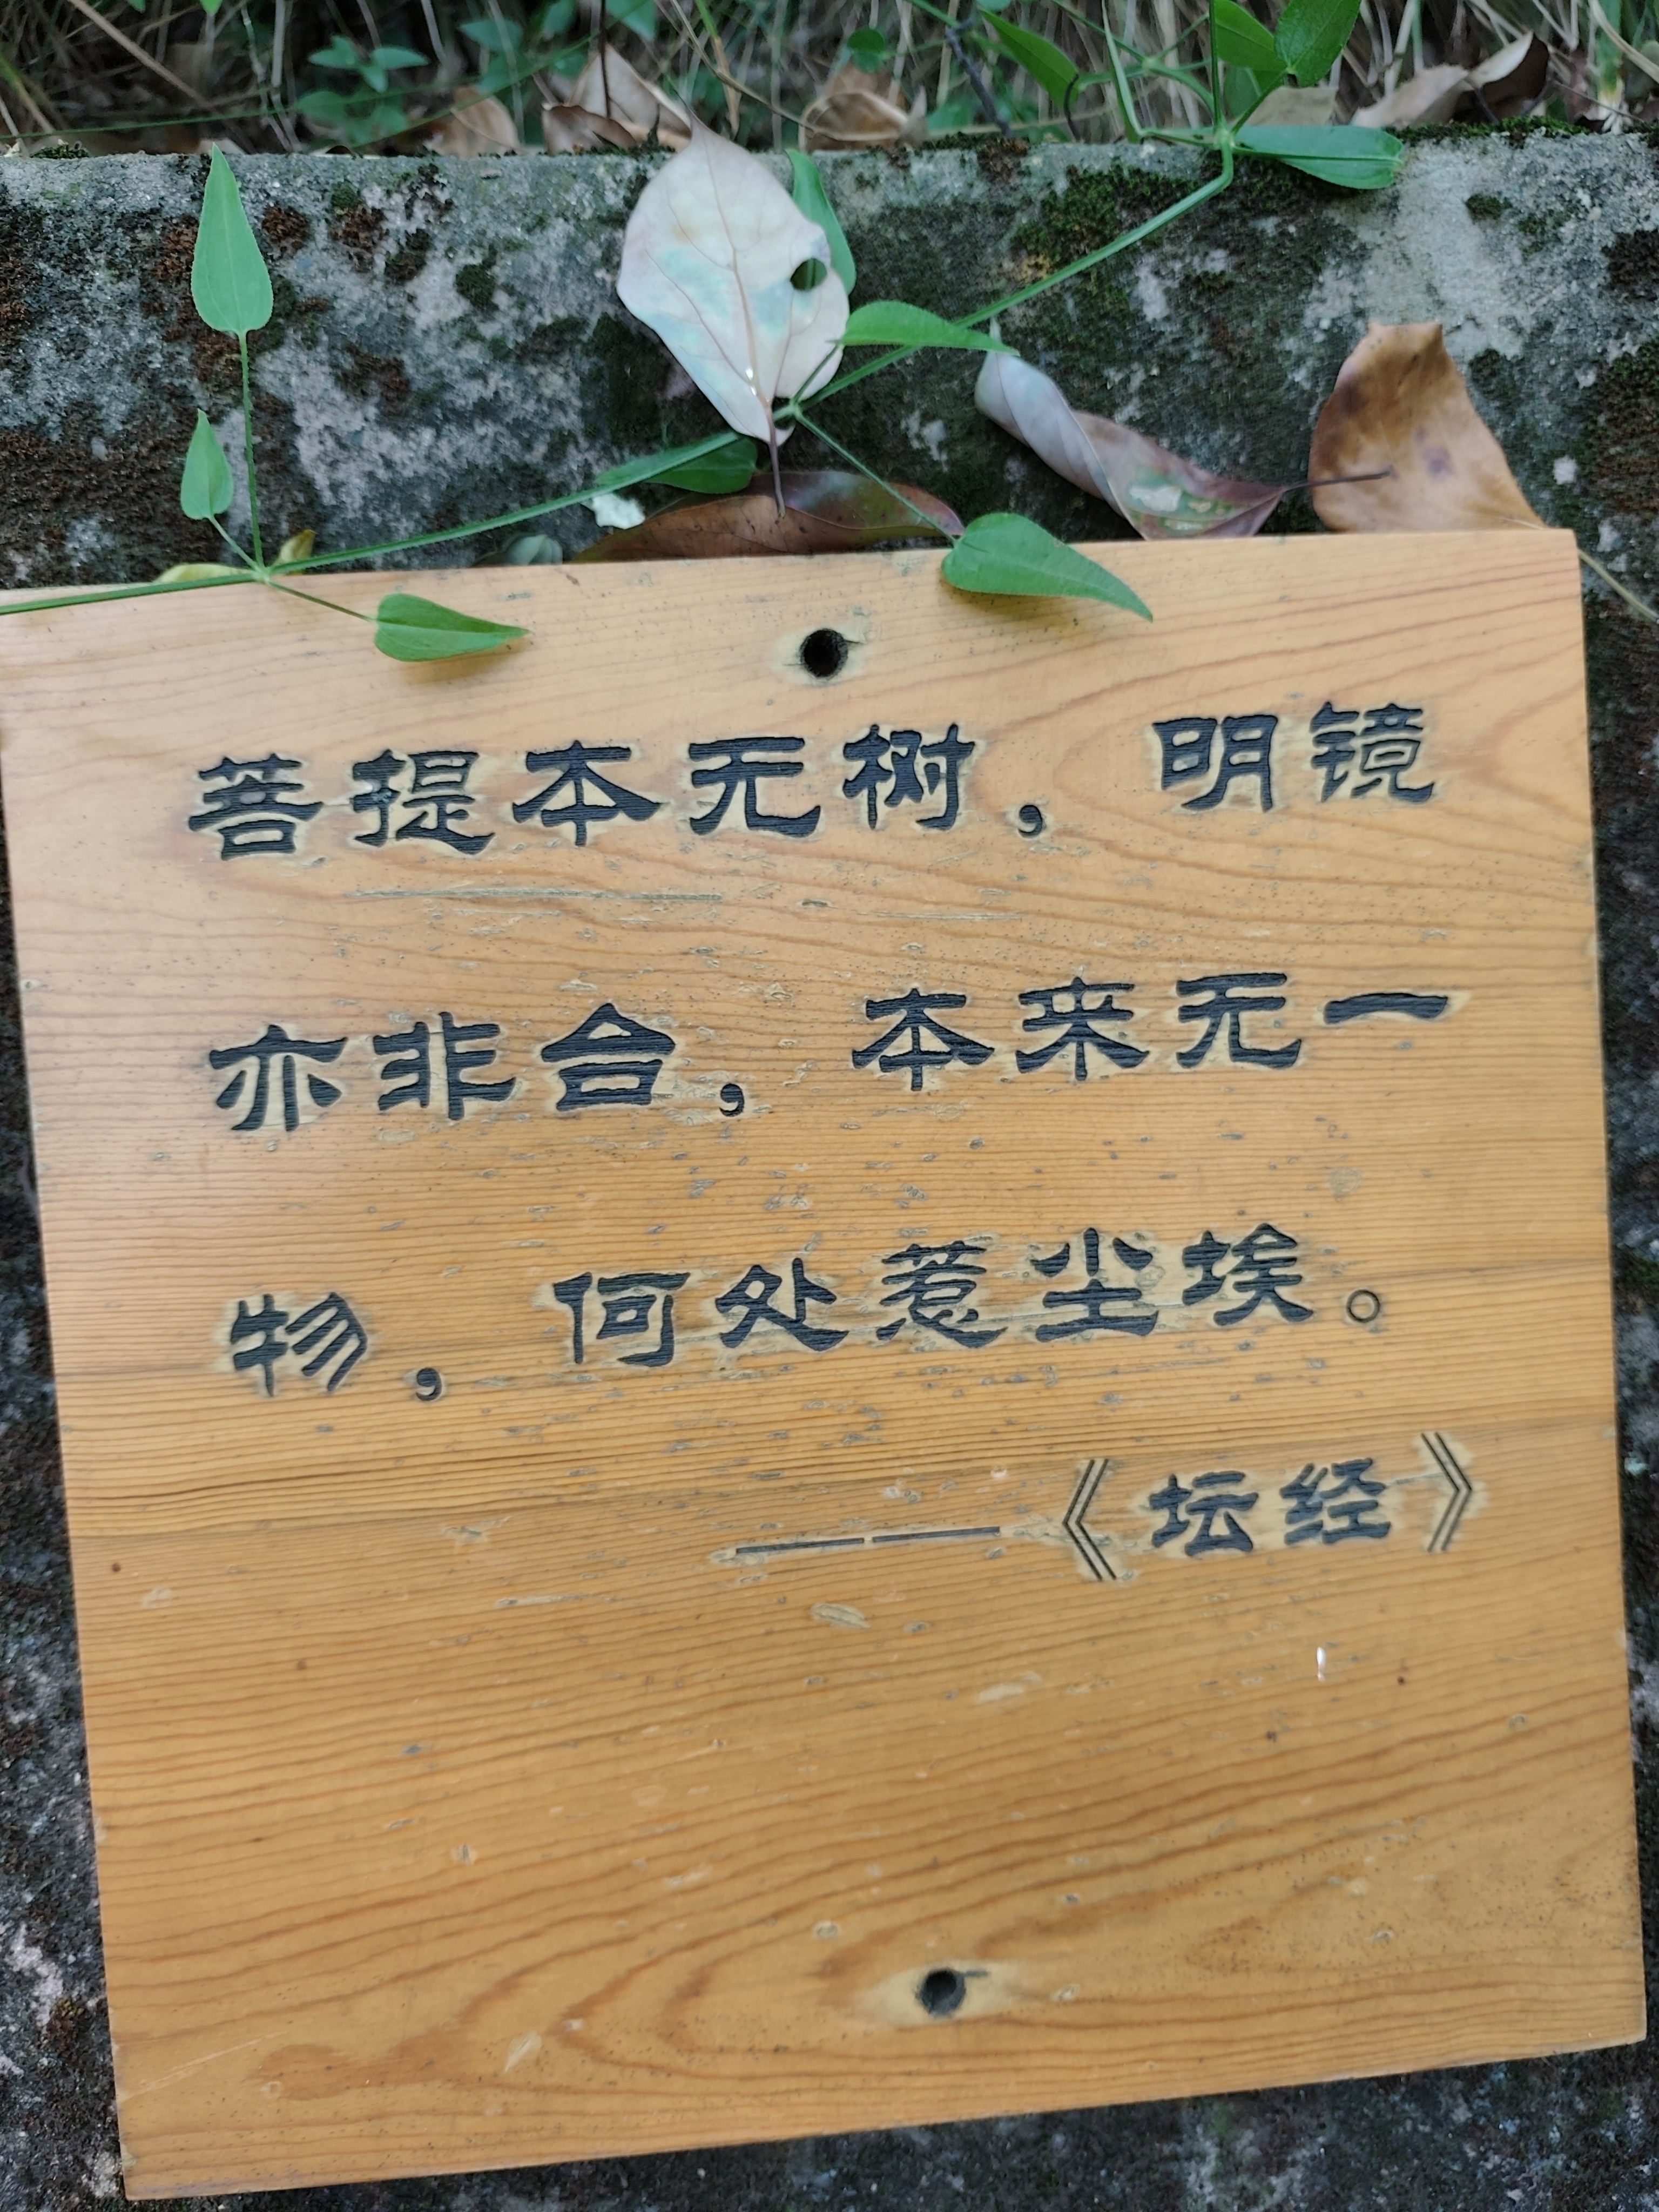 菩提本无树，明镜
亦非台，本来无一
物，何处惹尘埃。
——《坛经》